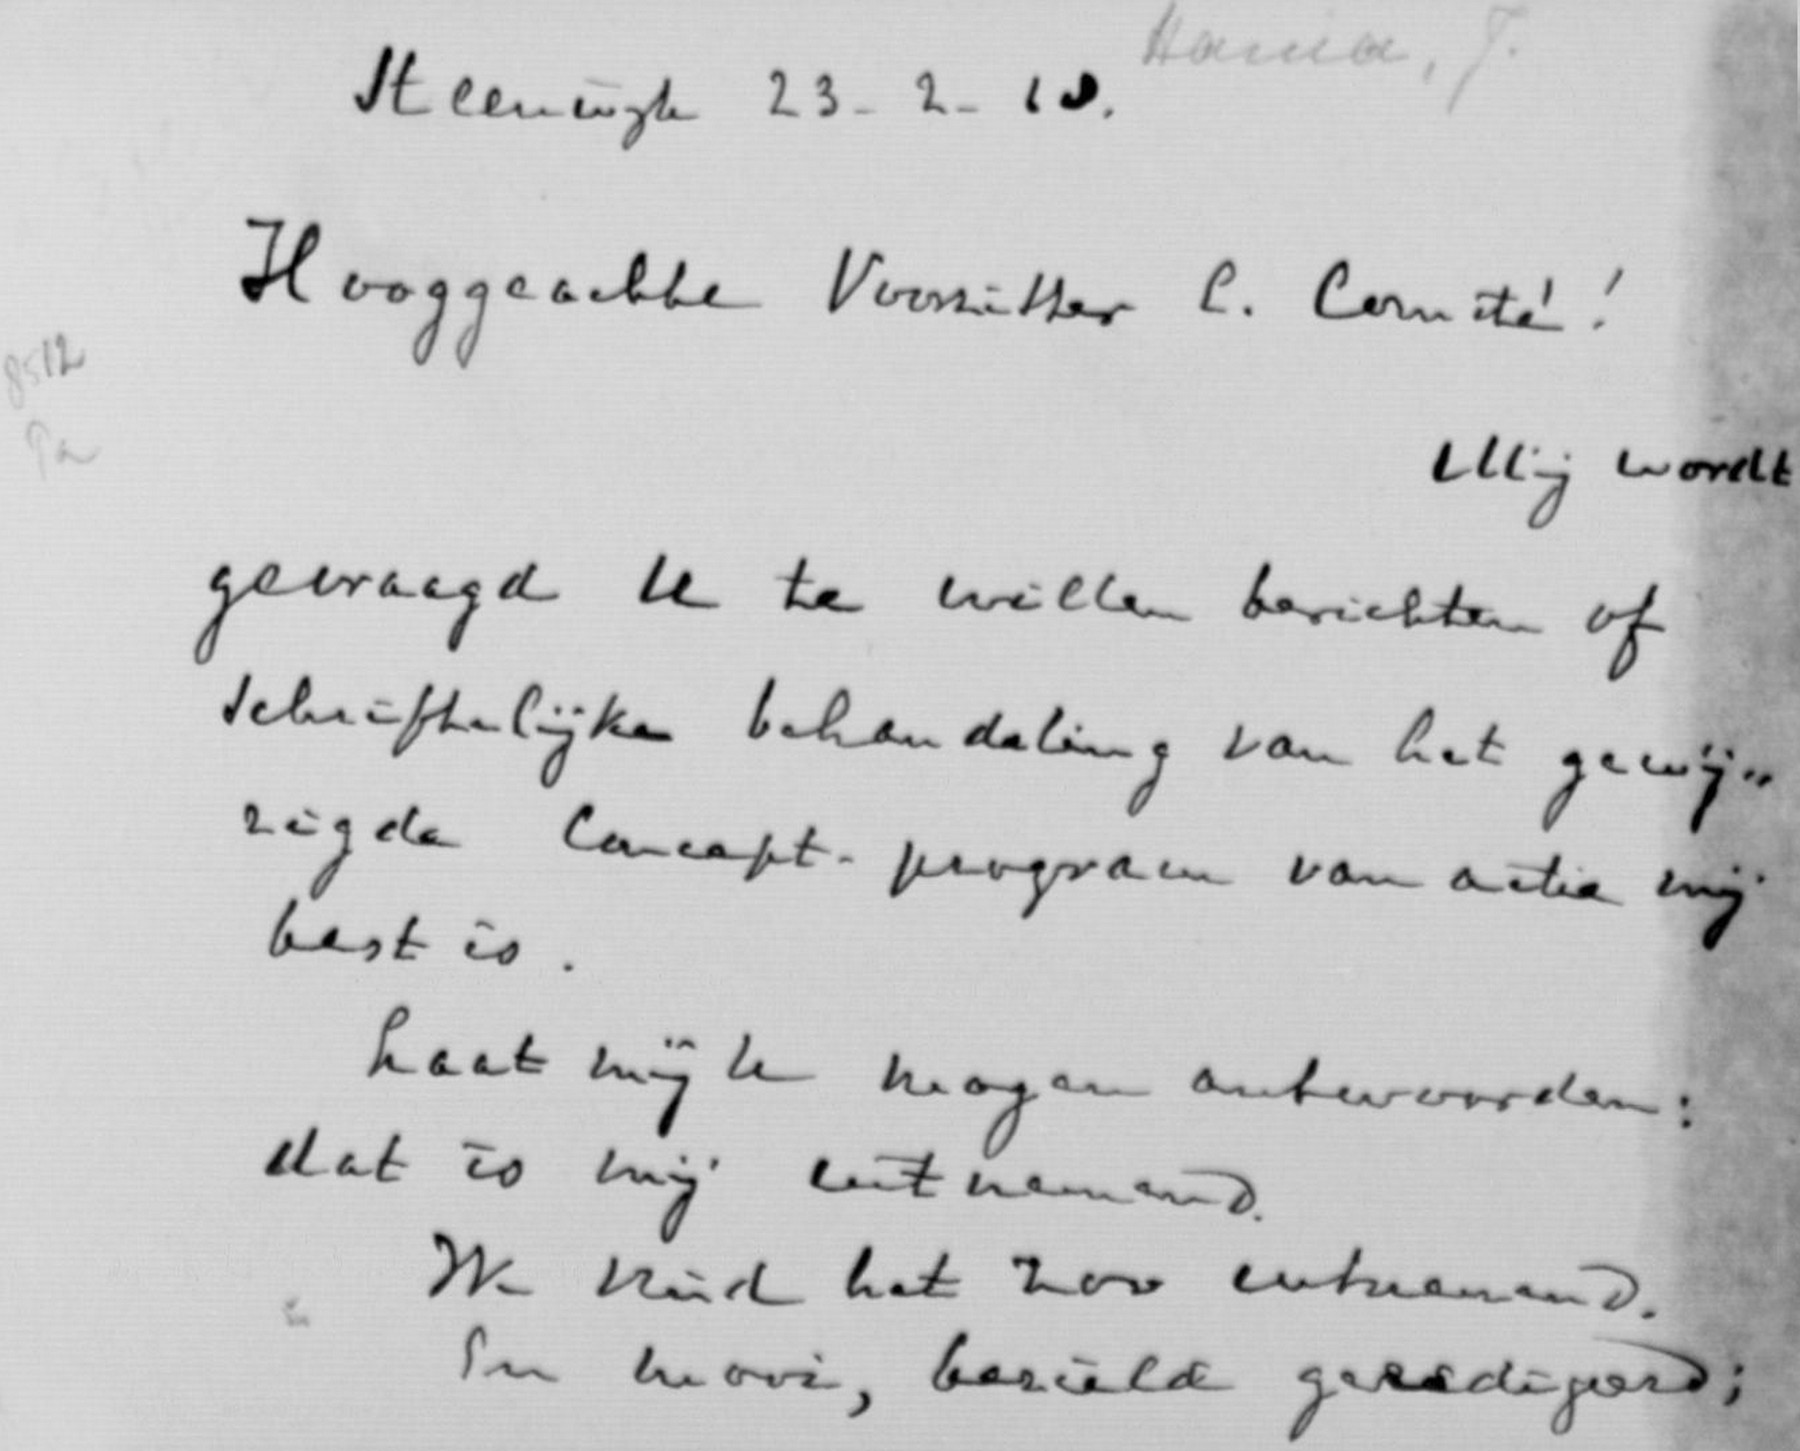 Hania, J.
Steenwijk 23-2-18.
Hooggeachte Voorzitter C. Comité!
8512
Pa
Mij wordt
gevraagd U te willen berichten of
schriftelijke behandeling van het gewij„
zigde Concept-program van actie mij
best is.
Laat mij U mogen antwoorden:
dat is mij uitnemend.
Ik vind het zoo uitnemend.
In mooi, bezield geredigeerd;